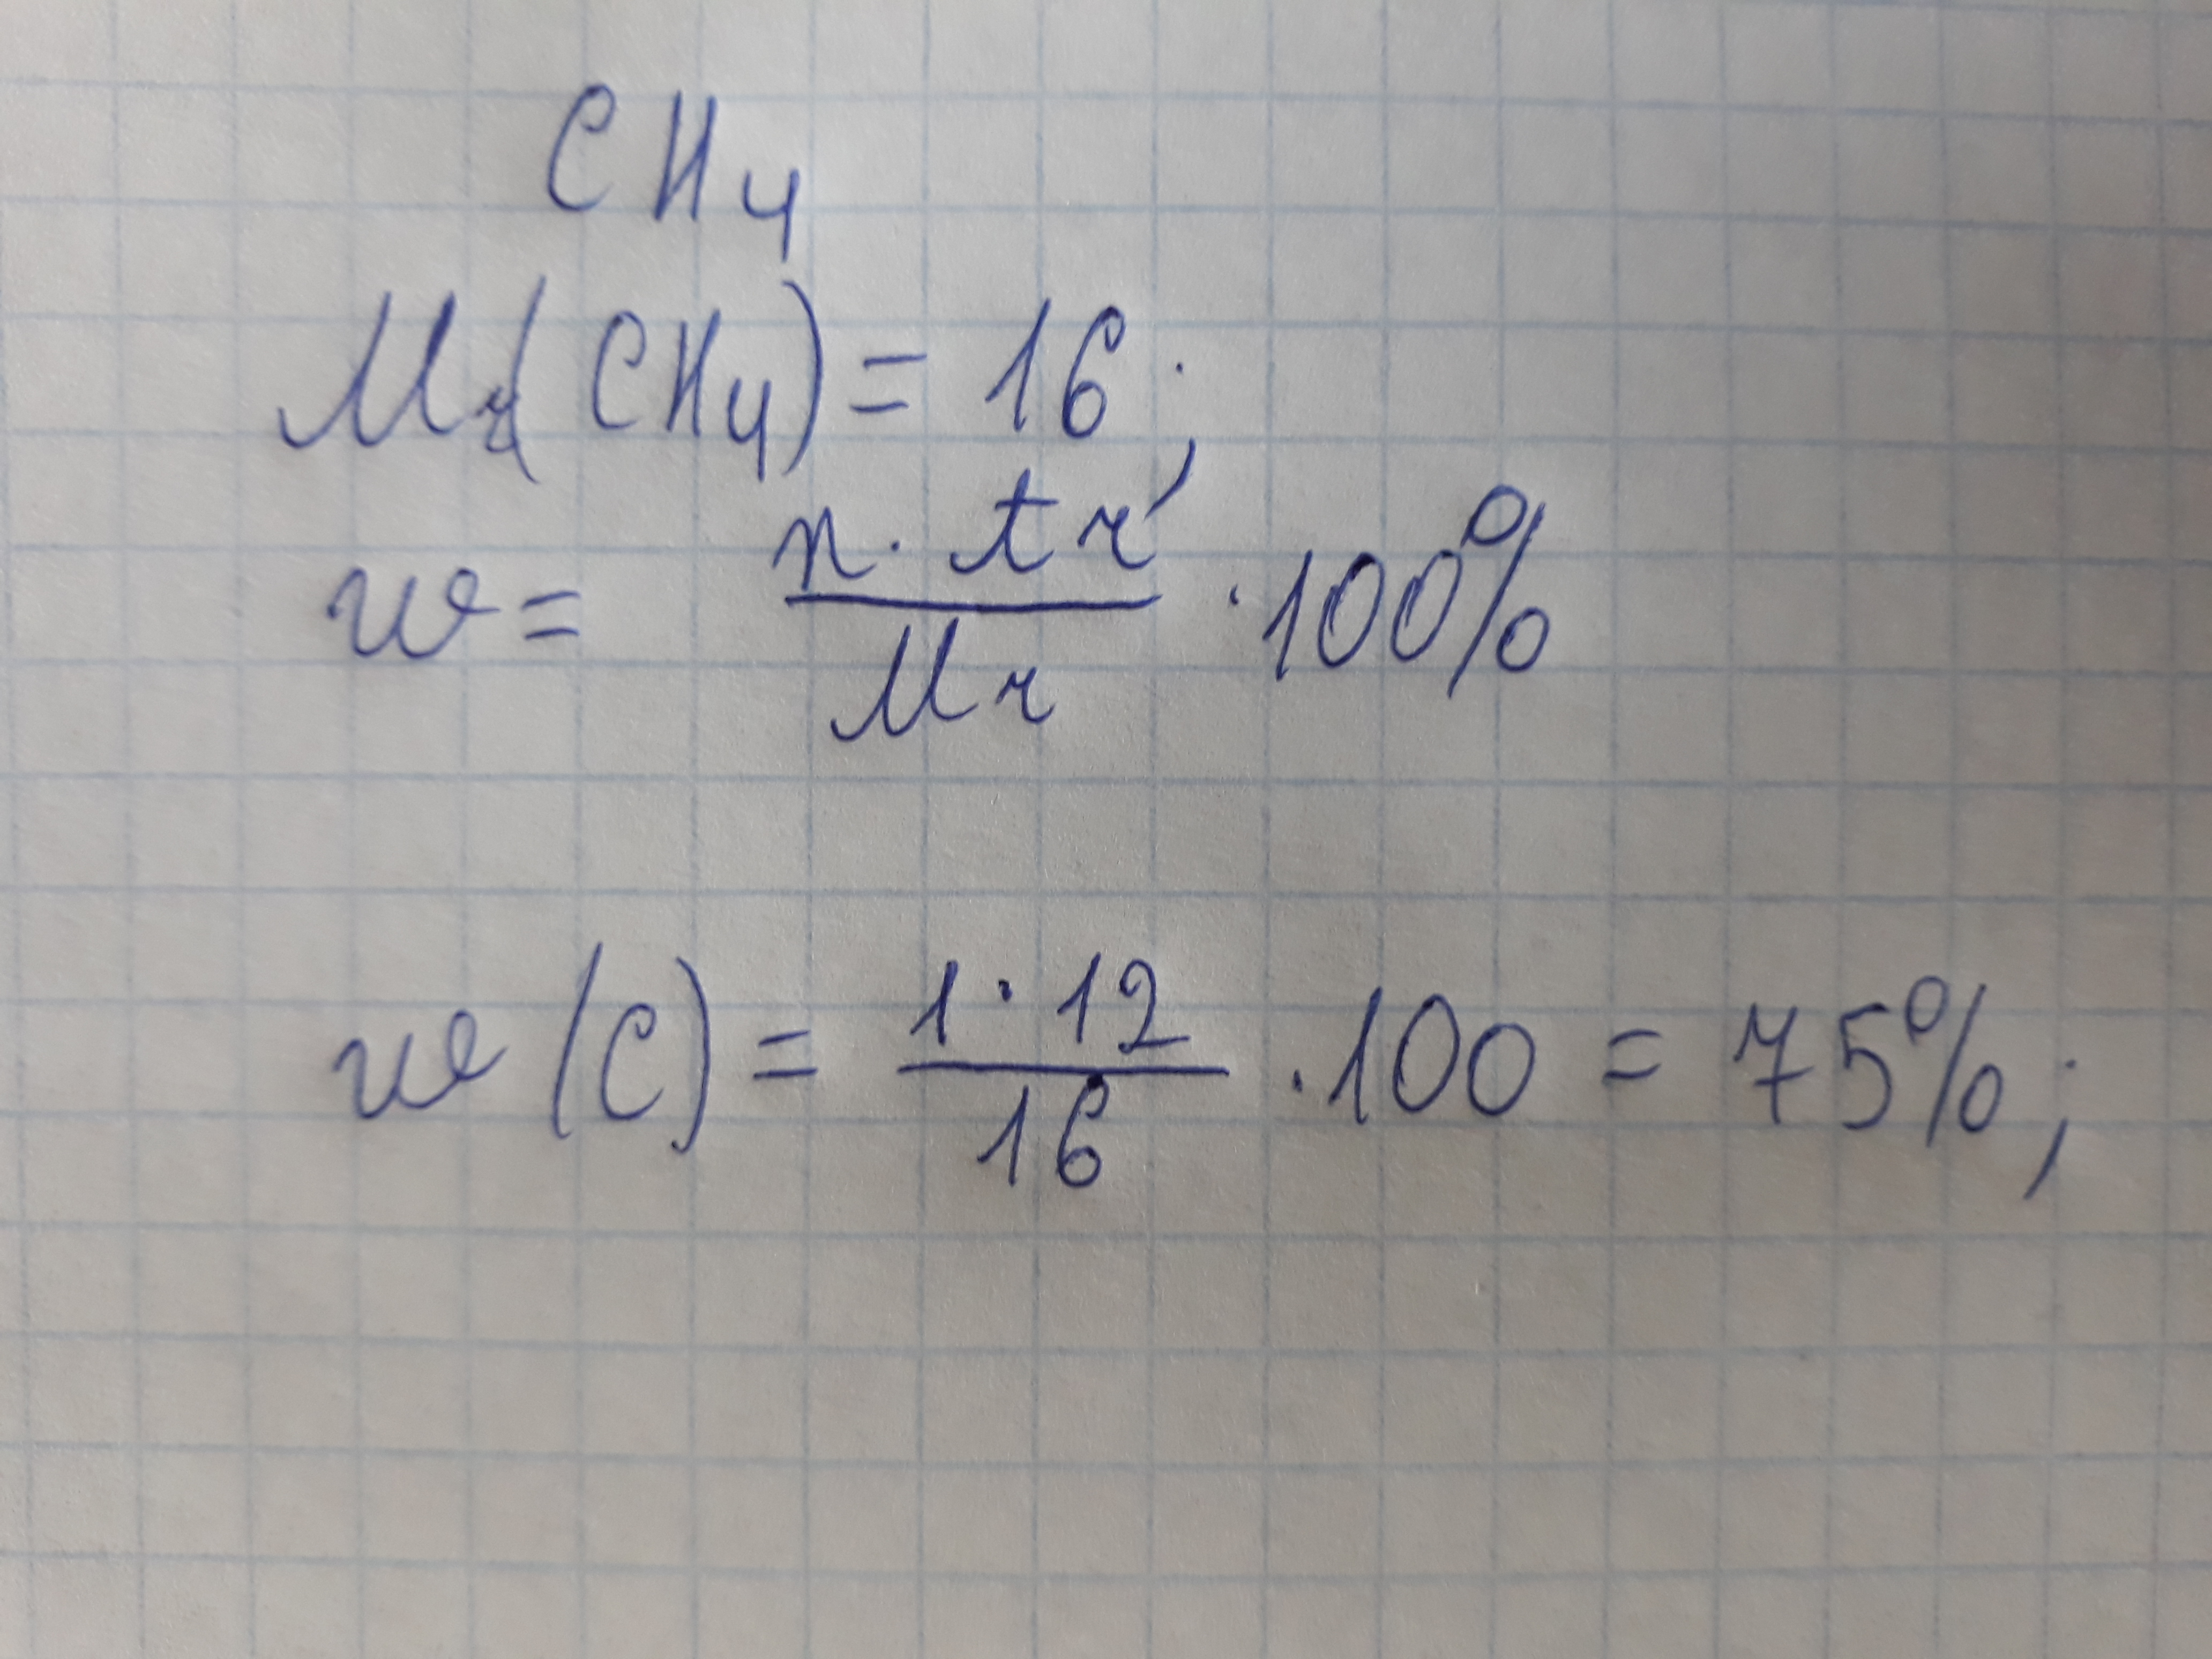 CH₄
Mr(CH₄) = 16;
w = n · Ar / Mr · 100%
w(C) = 1 · 12 / 16 · 100 = 75%;